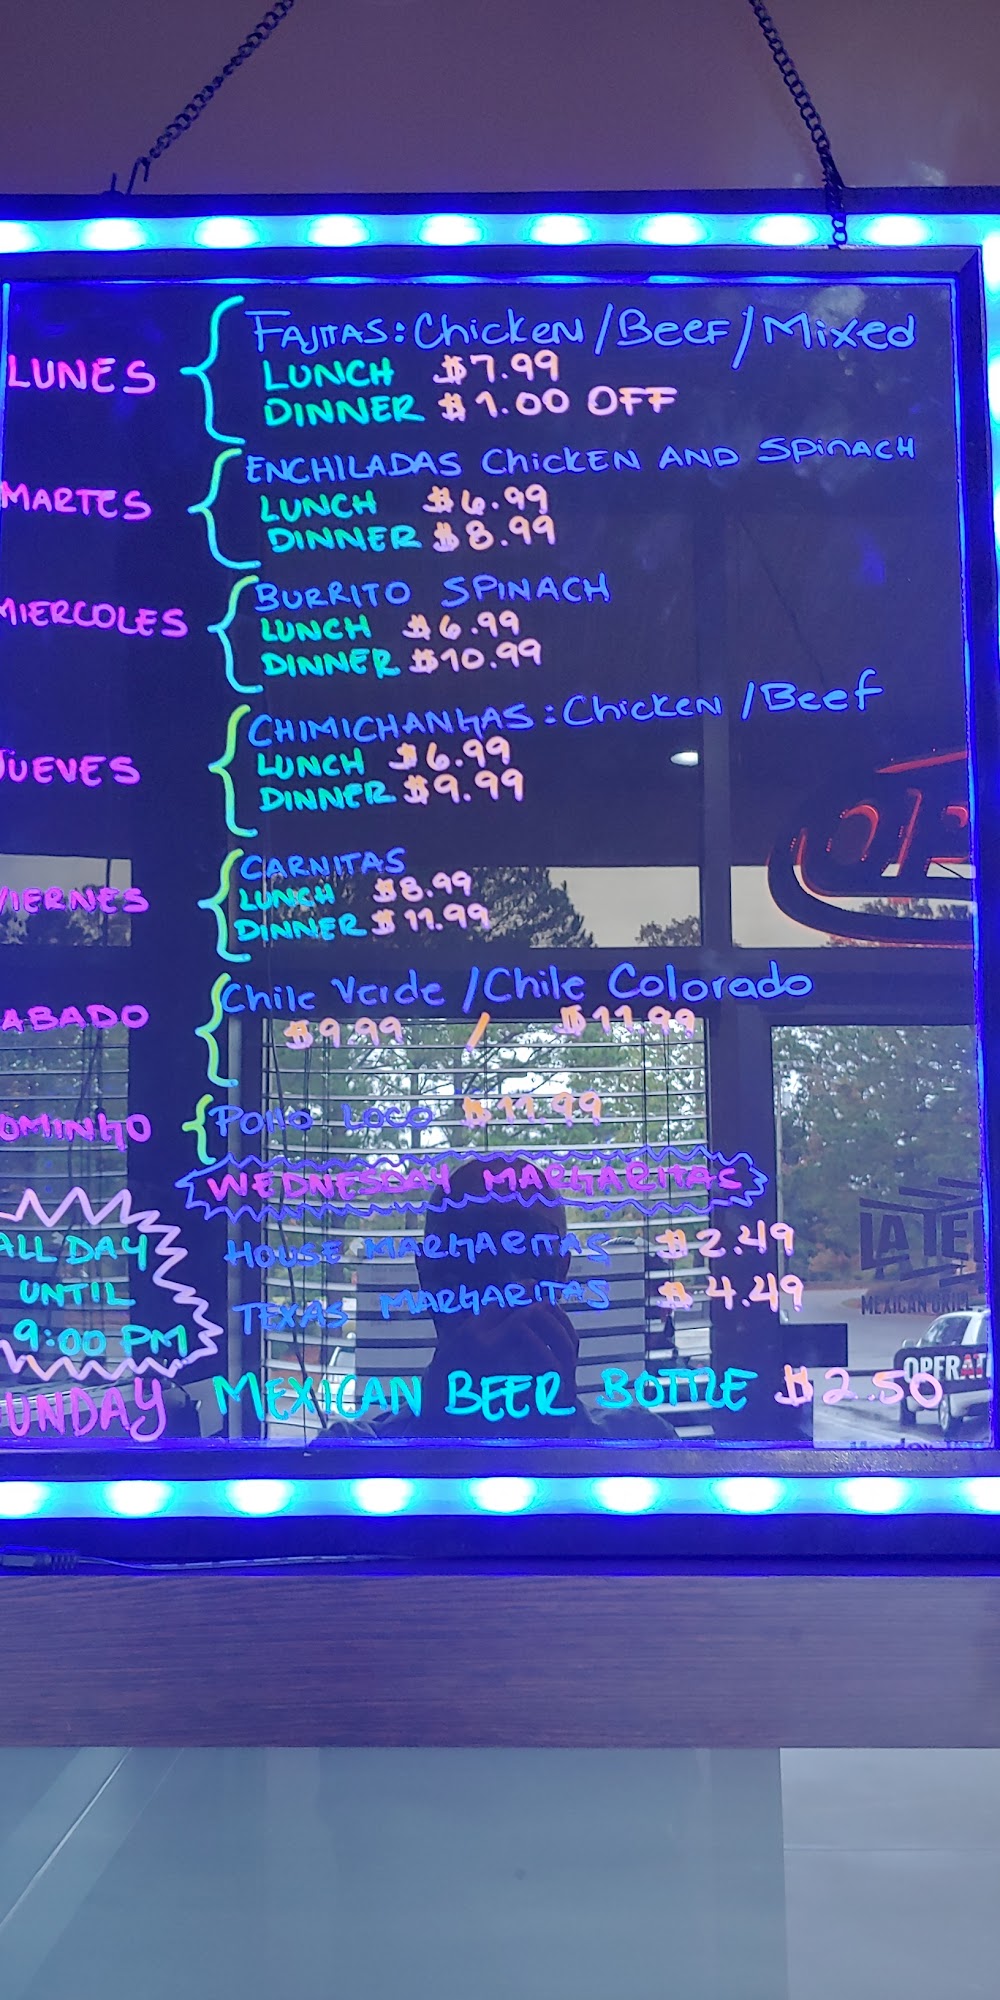 LUNES
FAJITAS: Chicken / Beef / Mixed
LUNCH $7.99
DINNER $1.00 OFF
MARTES
ENCHILADAS Chicken AND Spinach
LUNCH $6.99
DINNER $8.99
MIERCOLES
BURRITO SPINACH
LUNCH $6.99
DINNER $10.99
JUEVES
CHIMICHANGAS: Chicken / Beef
LUNCH $6.99
DINNER $9.99
VIERNES
CARNITAS
LUNCH $8.99
DINNER $11.99
ABADO
Chile Verde / Chile Colorado
$9.99 / $11.99
OMINGO
Pollo Loco $11.99
WEDNESDAY MARGARITAS
ALL DAY
UNTIL
9:00 PM
HOUSE MARGARITAS $2.49
TEXAS MARGARITAS $4.49
UNDAY MEXICAN BEER BOTTLE $2.50
OPE
LA TE
MEXICAN GRILL
OPERAT